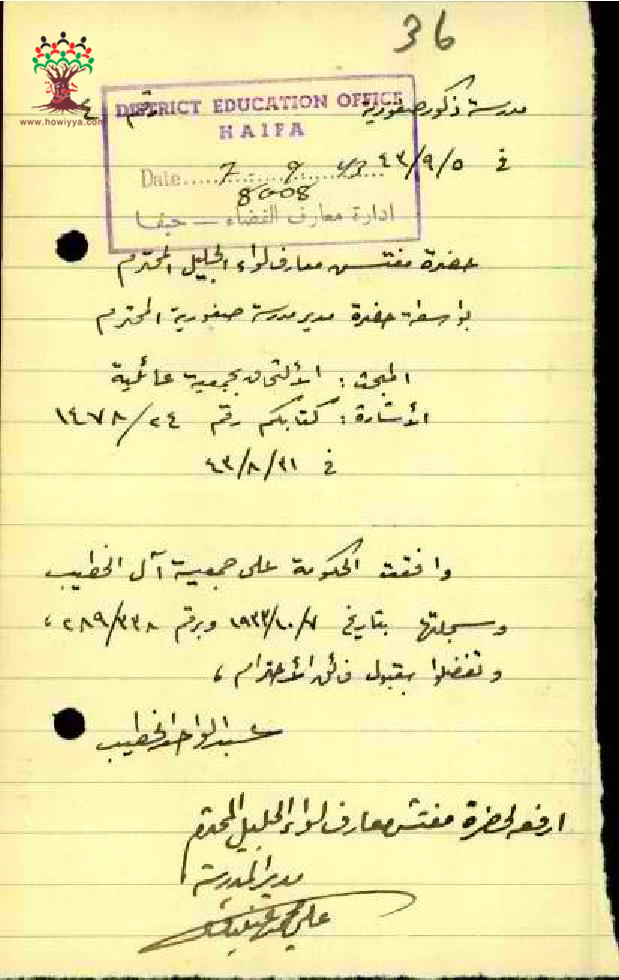 36
www.howiyya.com
DISTRICT EDUCATION OFFICE
HAIFA
Date 7 9 43
8008
ادارة معارف القضاء — حيفا
مدرسة ذكور صفورية رقم ٤
في ٤٣/٩/٥
حضرة مفتش معارف لواء الجليل المحترم
بواسطة حضرة مدير مدرسة صفورية المحترم
المبحث: الألتحاق بجمعية عائلية
الأشارة: كتابكم رقم ١٤٧٨/٢٤
في ٤٣/٨/٣١
وافقت الحكومة على جمعية آل الخطيب
وسجلتها بتاريخ ١٩٣٣/١٠/٧ وبرقم ٢٨٩/٣٣٨،
وتفضلوا بقبول فائق الأحترام،
عبد الواحد الخطيب
ارفعه لحضرة مفتش معارف لواء الجليل المحترم
مدير المدرسة
علي محمد